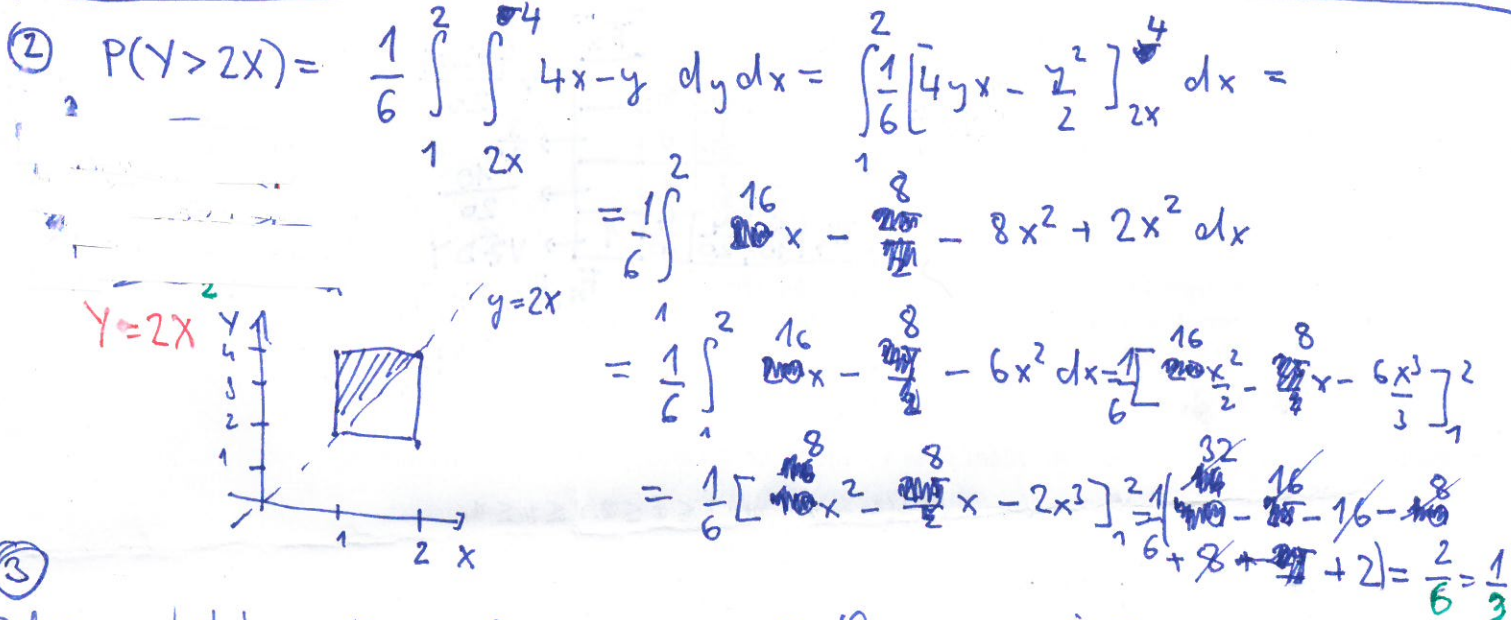 ② P(Y>2X) = 1/6 ∫₁² ∫₂ₓ⁴ 4x-y dydx = ∫₁² 1/6 [4yx - y²/2]₂ₓ⁴ dx =
= 1/6 ∫₁² 16x - 8 - 8x² + 2x² dx
Y=2X
y=2x
= 1/6 ∫₁² 16x - 8 - 6x² dx = 1/6 [16 x²/2 - 8x - 6x³/3]₁²
= 1/6 [8x² - 8x - 2x³]₁² = 1/6 (32 - 16 - 16 - 8
+ 8 + 2) = 2/6 = 1/3
Y
4
3
2
1
1 2 X
③